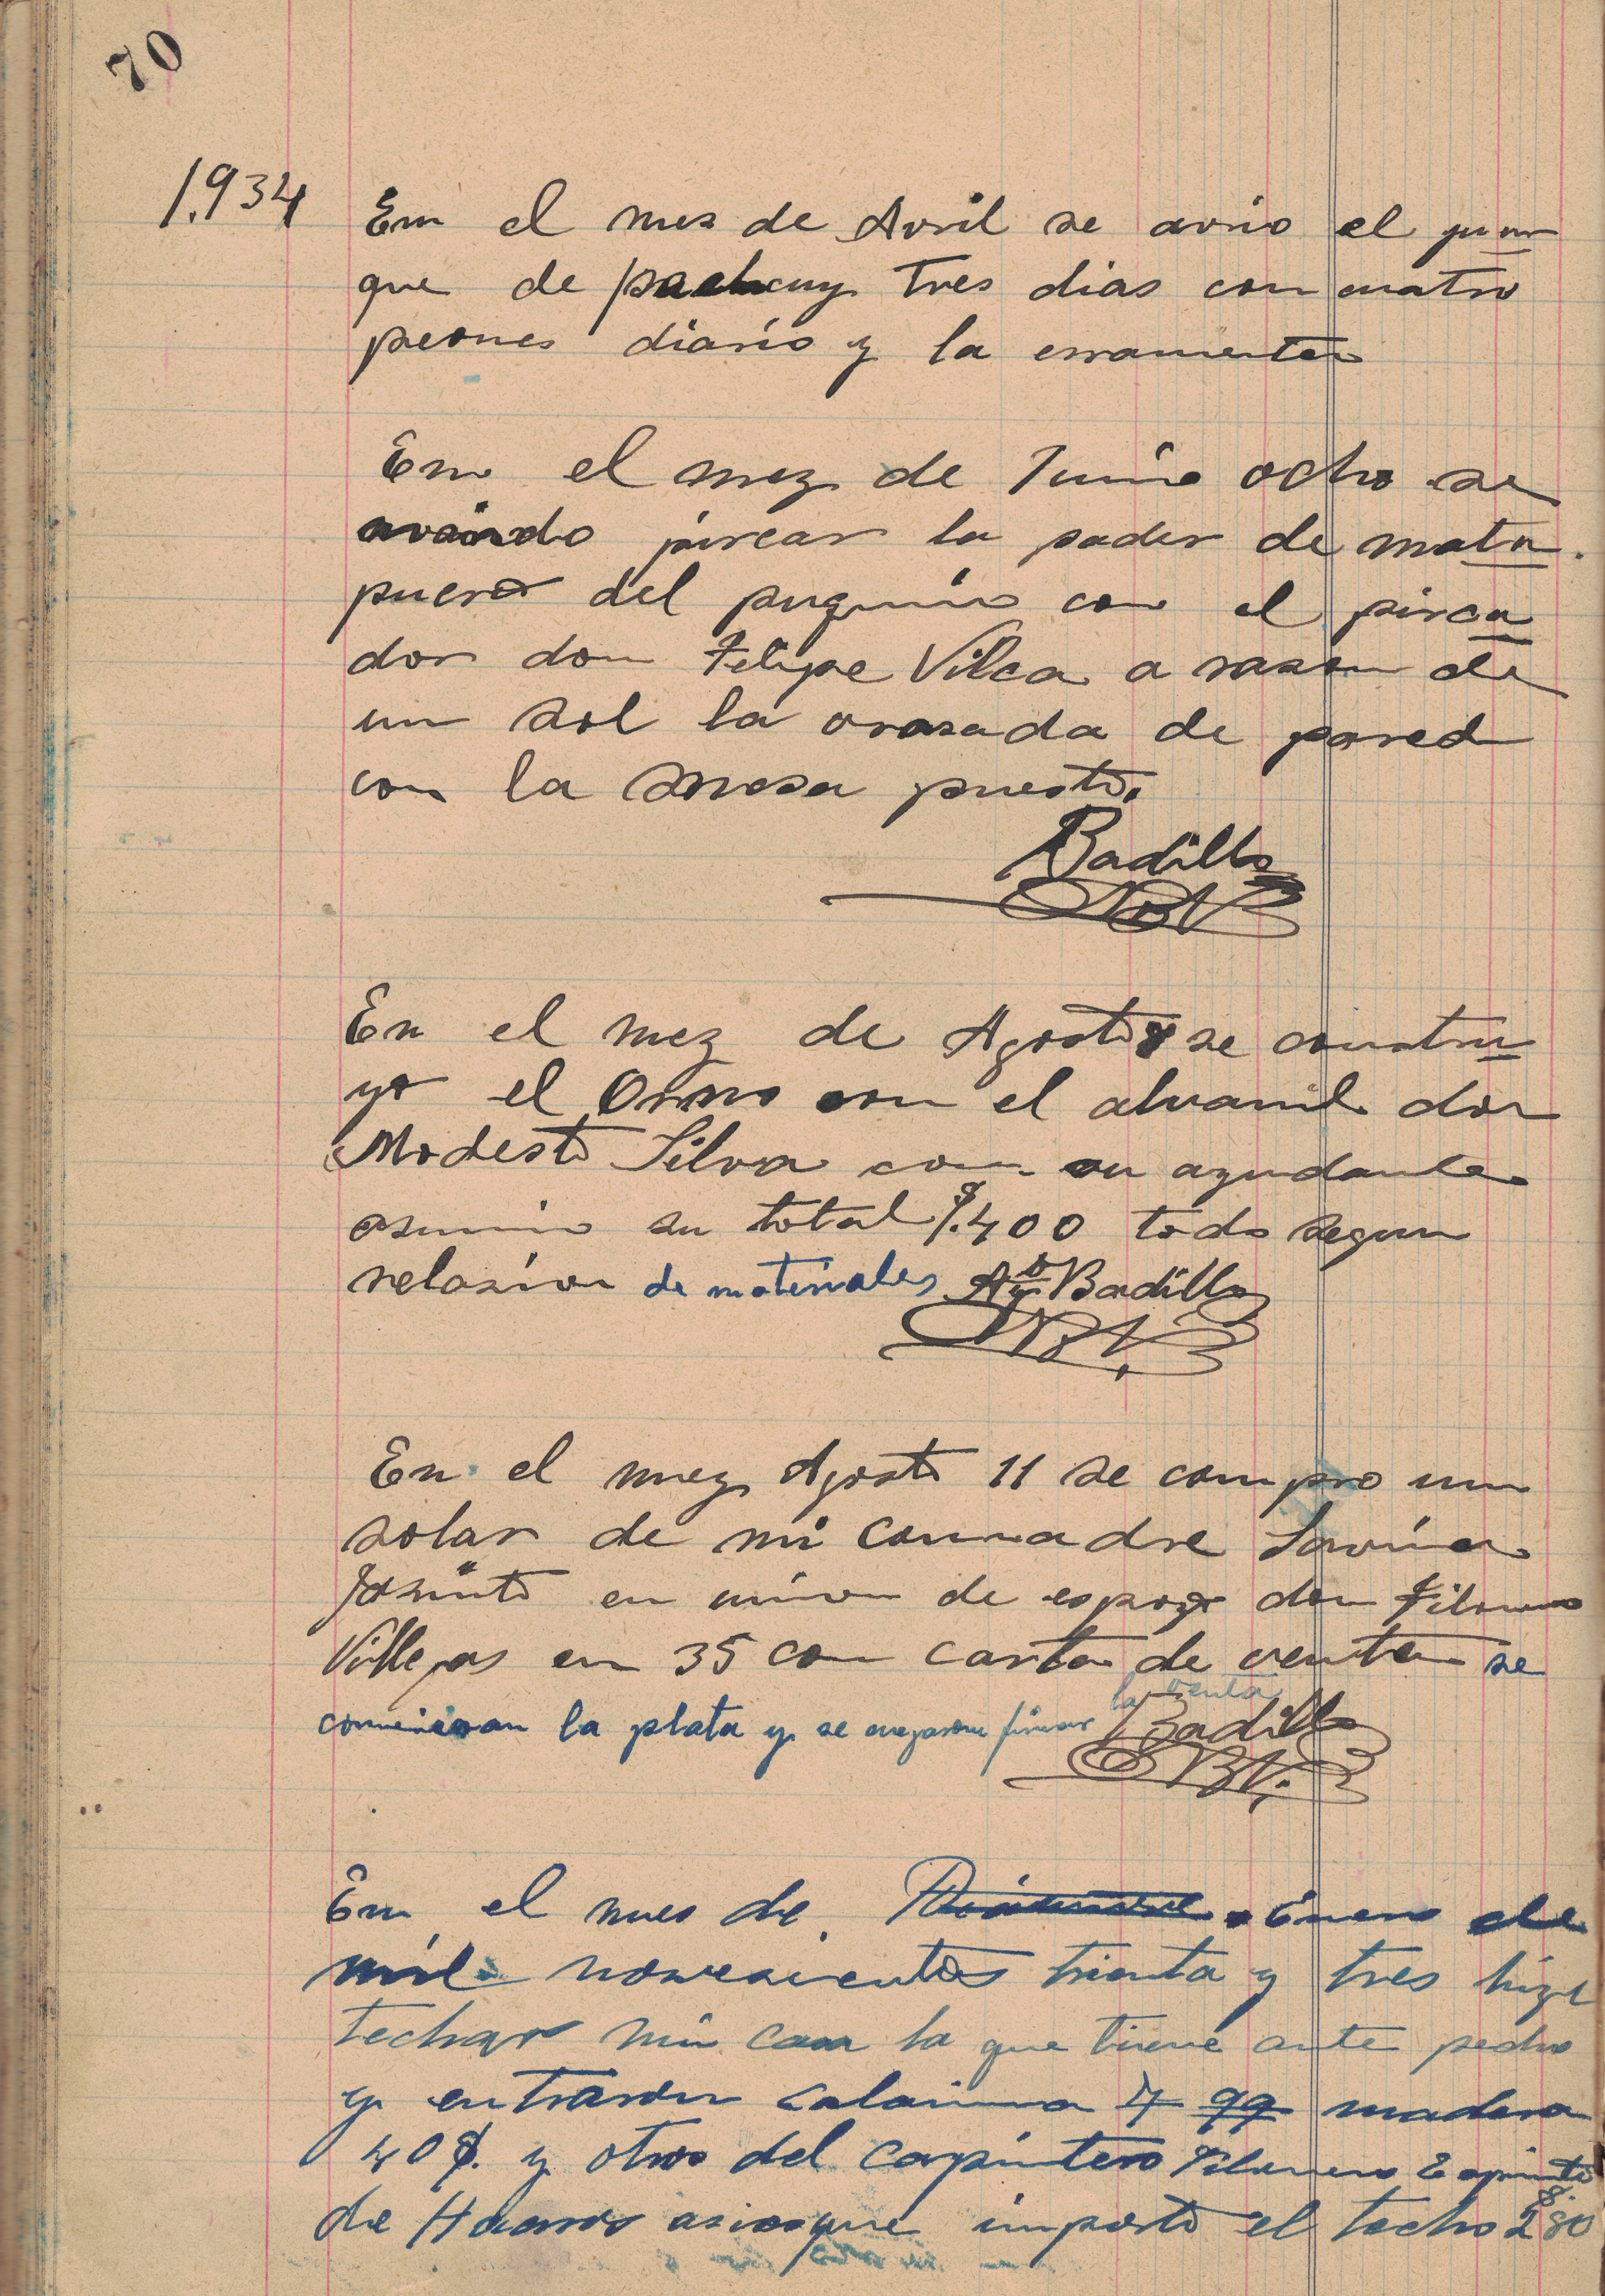 70
1.934 En el mes de Avril se avrio el puur
que de pachcuy tres dias con cuatro
peones diario y la erramenta
En el mez de Junio ocho se
pircar la pader de mata
puero del puquino con el pirca
dor don Felipe Vilca a rason de
un sol la vrasada de pared
con la mesa puesto.
Badillo
En el mez de Agosto 8 se coustru
yo el Orno con el alvanil don
Modesto Silva con su ayudante
asumio su total $.400 todo segun
relasion de materiales Badillo
En el mez Agosto 11 se compro un
solar de mi coumadre Savina
Jasinto en union de espozo don Filomeno
Villegas en 35 con carta de venta se
comieron la plata y se negaron firmar la venta Badillo
En el mes de Enero de
mil novesientos trienta y tres hize
techar mi casa la que tiene ante pecho
y entraron calamina 4 qq madera
40 $. y otros del carpintero Filomeno Espinto
de asiosque importo el techo $.280